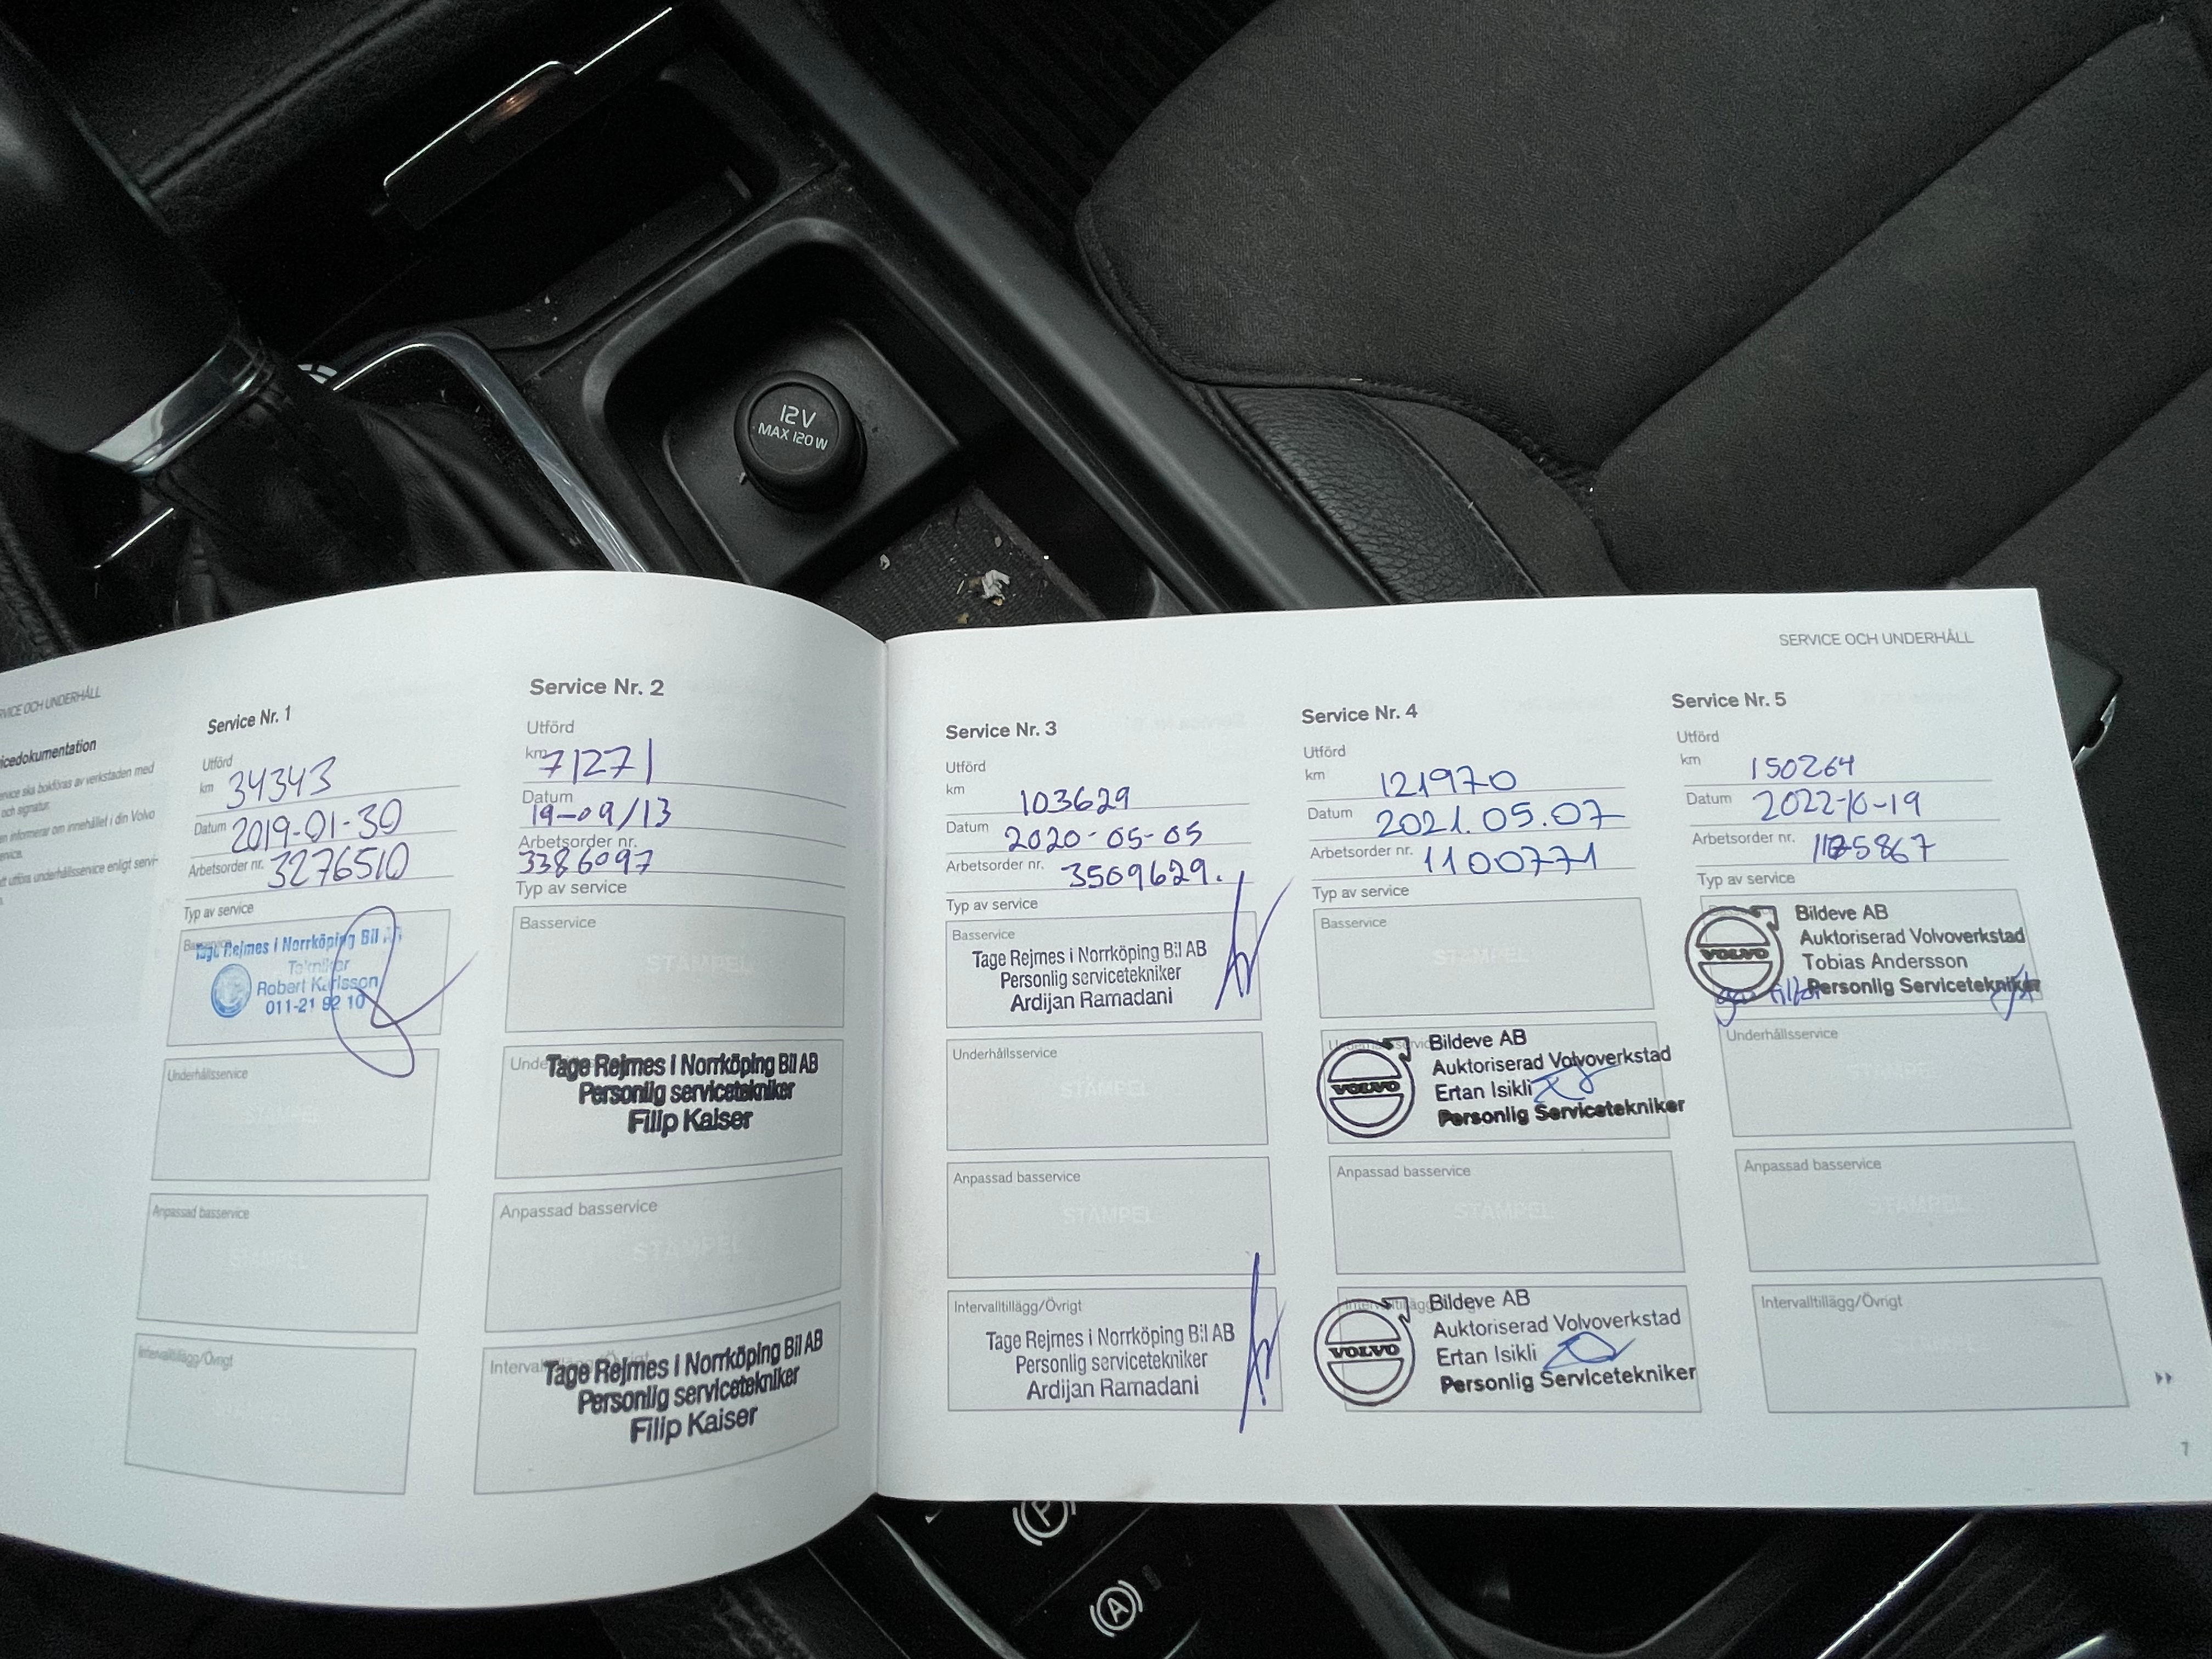 12V
MAX 120W
SERVICE OCH UNDERHÅLL
och signatur.
Service Nr. 1
Utförd
km 34343
Datum 2019-01-30
Arbetsorder nr. 3276510
Typ av service
Basservice
Tage Rejmes i Norrköping Bil AB
Tekniker
Robert Karlsson
011-21 92 10
Underhållsservice
Anpassad basservice
STÄMPEL
Intervalltillägg/Övrigt
Service Nr. 2
Utförd
km 71271
Datum
19-09/13
Arbetsorder nr.
3386097
Typ av service
Basservice
STÄMPEL
Tage Rejmes i Norrköping Bil AB
Personlig servicetekniker
Filip Kaiser
Anpassad basservice
STÄMPEL
Tage Rejmes i Norrköping Bil AB
Personlig servicetekniker
Filip Kaiser
SERVICE OCH UNDERHÅLL
Service Nr. 3
Utförd
km 103629
Datum 2020-05-05
Arbetsorder nr. 3509629.
Typ av service
Basservice
Tage Rejmes i Norrköping Bil AB
Personlig servicetekniker
Ardijan Ramadani
Underhållsservice
STÄMPEL
Anpassad basservice
STÄMPEL
Intervalltillägg/Övrigt
Tage Rejmes i Norrköping Bil AB
Personlig servicetekniker
Ardijan Ramadani
Service Nr. 4
Utförd
km 121970
Datum 2021.05.07
Arbetsorder nr. 1100771
Typ av service
Basservice
STÄMPEL
VOLVO
Bildeve AB
Auktoriserad Volvoverkstad
Ertan Isikli
Personlig Servicetekniker
Anpassad basservice
STÄMPEL
VOLVO
Bildeve AB
Auktoriserad Volvoverkstad
Ertan Isikli
Personlig Servicetekniker
Service Nr. 5
Utförd
km 150264
Datum 2022-10-19
Arbetsorder nr.
Typ av service
VOLVO
Bildeve AB
Auktoriserad Volvoverkstad
Tobias Andersson
Personlig Servicetekniker
Underhållsservice
STÄMPEL
Anpassad basservice
STÄMPEL
Intervalltillägg/Övrigt
7
P
A